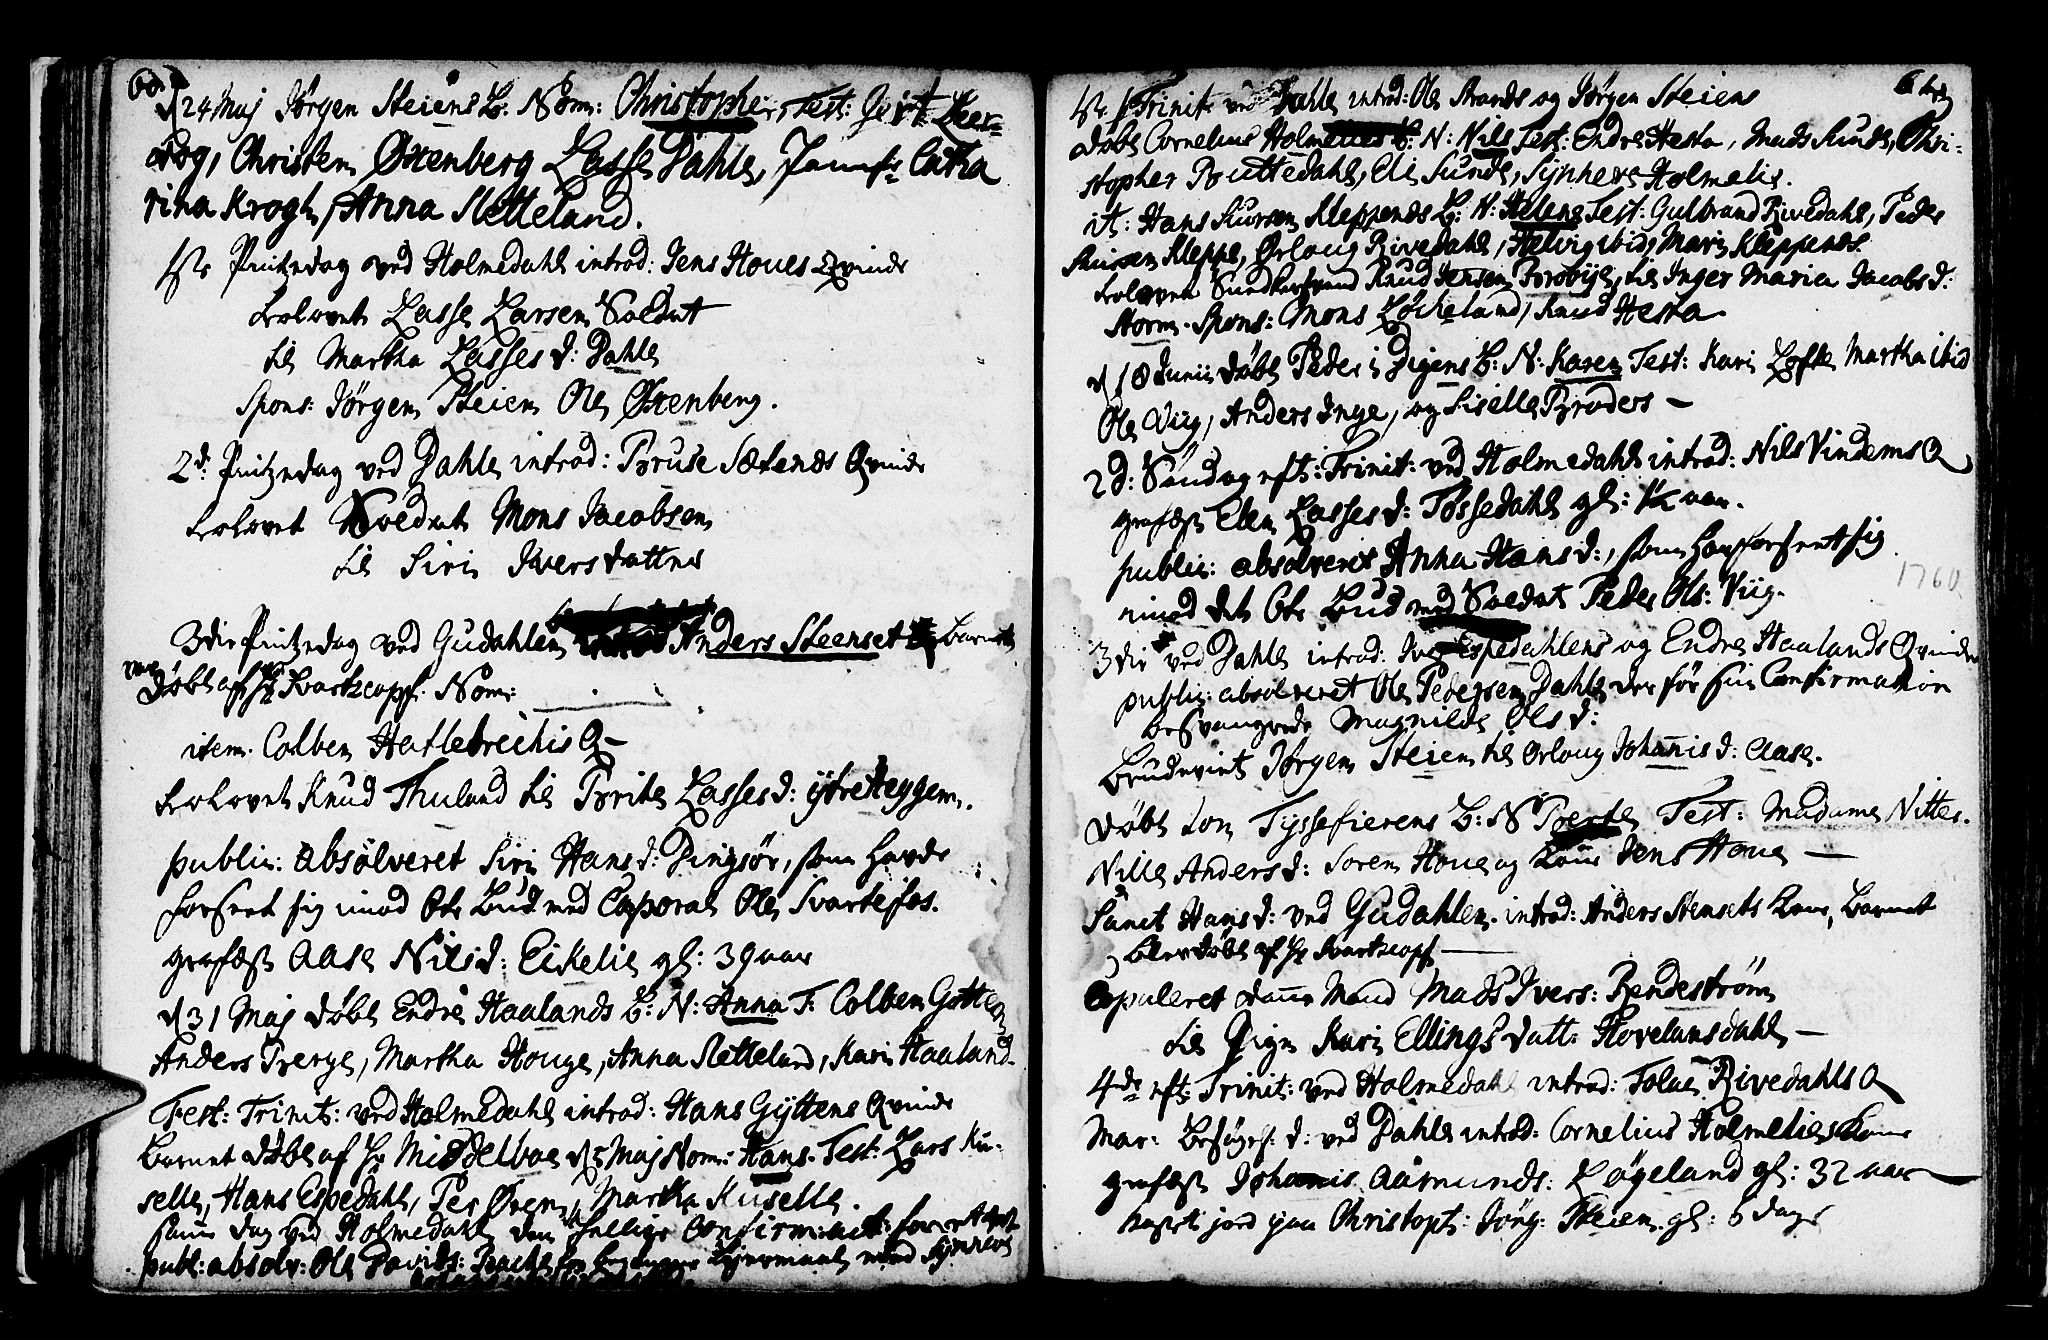 60.
d 24 Maj Jørgen Steiens B: Nom: Christopher, Test: Gert Leer-
Christen Øxenberg Lasse Dahle, Jomfr: Catha
rina Krogh, Anna Sletteland.
1ste Pintzedag ved Holmedahl introd: Jens Houes Qvinde
trolovet Lasse Larsen Soldat
til Martha Lasses d: Dahle
Spons: Jørgen Steien Ole Øxenberg.
2d: Pintzedag ved Dahle introd: Bruse Sætenes Qvinde
trolovet Soldat Mons Jacobsen
til Siri Ivers datter
3die Pintzedag ved Gudahlen Anders Steenset Barnet
døbt af Hr Svartzcopf. Nom:
item. Colben Hatlebrechis Q-
trolovet Knud Thuland til Brite Lasses d: ytre Heggem.
public: absolveret Siri Hans d: Dingsør, som hafde
forseet sig imod 6te Bud med Caporal Ole Svartefos.
grafæst Aase Nils d: Eikelie gl: 39 aar
d 31 Maj døbt Endre Haalands B: N: Anna T: Colben
Anders Tverge, Martha Houge, Anna Sletteland, Kari Haaland
Fest: Trinit: ved Holmedahl introd: Hans Gyttens Qvinde
Barnet døbt af Hr Middelboe d 5 Maj Nom: Hans. Test: Lars Ku-
selle, Hans Espedahl, Per Øren, Martha Kuselle.
samme dag ved Holmedahl den hellige Confirmat:
publ: absolv: Ole Davids: med Synneve
61
1ste p Trinit: ved Dahle introd: Ole Strands og Jørgen Steiens
døbt Cornelius Holmelies B: N: Nils Test: Endre Hesta, Mads Sunde, Chri-
stopher Bruttedahl, Eli Sunde, Synneve Holmelie.
it: Hans Siursen Kleppenes B: N: Helene Test: Gulbrand Rivedahl, Peder
Siursen Kleppe, Ørloug Rivedahl, Helvig ibid, Mari Kleppenes.
trolovet Knud Jensen til Inger Maria Jacobs d:
Storm. Spons: Mons Løkeland, Knud Hesta
d 18 Junii døbt Peder i Digens B: N: Karen Test: Kari Lofte Martha ibid
Ole Viig, Anders Inge, og Siselle Broders -
2d: Søndag eft: Trinit: ved Holmedahl introd: Nils Vindems Q
grafæst Elen Lasses d: Tøssedahl gl: 1/2 aar.
public: absolveret Anna Hans d:, som har forseet sig
imod det 6te Bud med Soldat Peder Ols: Viig.
1760
3die ved Dahle introd: Iver Espedahlens og Endre Haalands Qvinder
public: absolveret Ole Pedersen Dahle der før sin Confirmation
besvangrede Magnilde Ols d:
Brudeviet Jørgen Steien til Ørloug Johannis d: Aase.
døbt Jon Tyssefierens B: N Berte Test: Madame Nitter.
Nille Anders d: Soren Houe og Jens Houe -
Sanct Hans d: ved Gudahlen. introd: Anders Stensets Kone, Barnet
blev døbt af Hr Svartzcopf -
Copuleret danne Mand Mads Ivers: Rendestrøm
til Pigen Kari Ellings datt: Hovelandsdahl -
4de eft: Trinit: ved Holmedahl introd: Tolae Rivedahls Q
Mar: Besøgels: d: ved Dahle introd: Cornelius Holmelies Kone
grafæst Johannis Aamunds: Løgeland gl: 32 aar
kast jord paa Christoph: Jørg: Steien gl: 6 dage